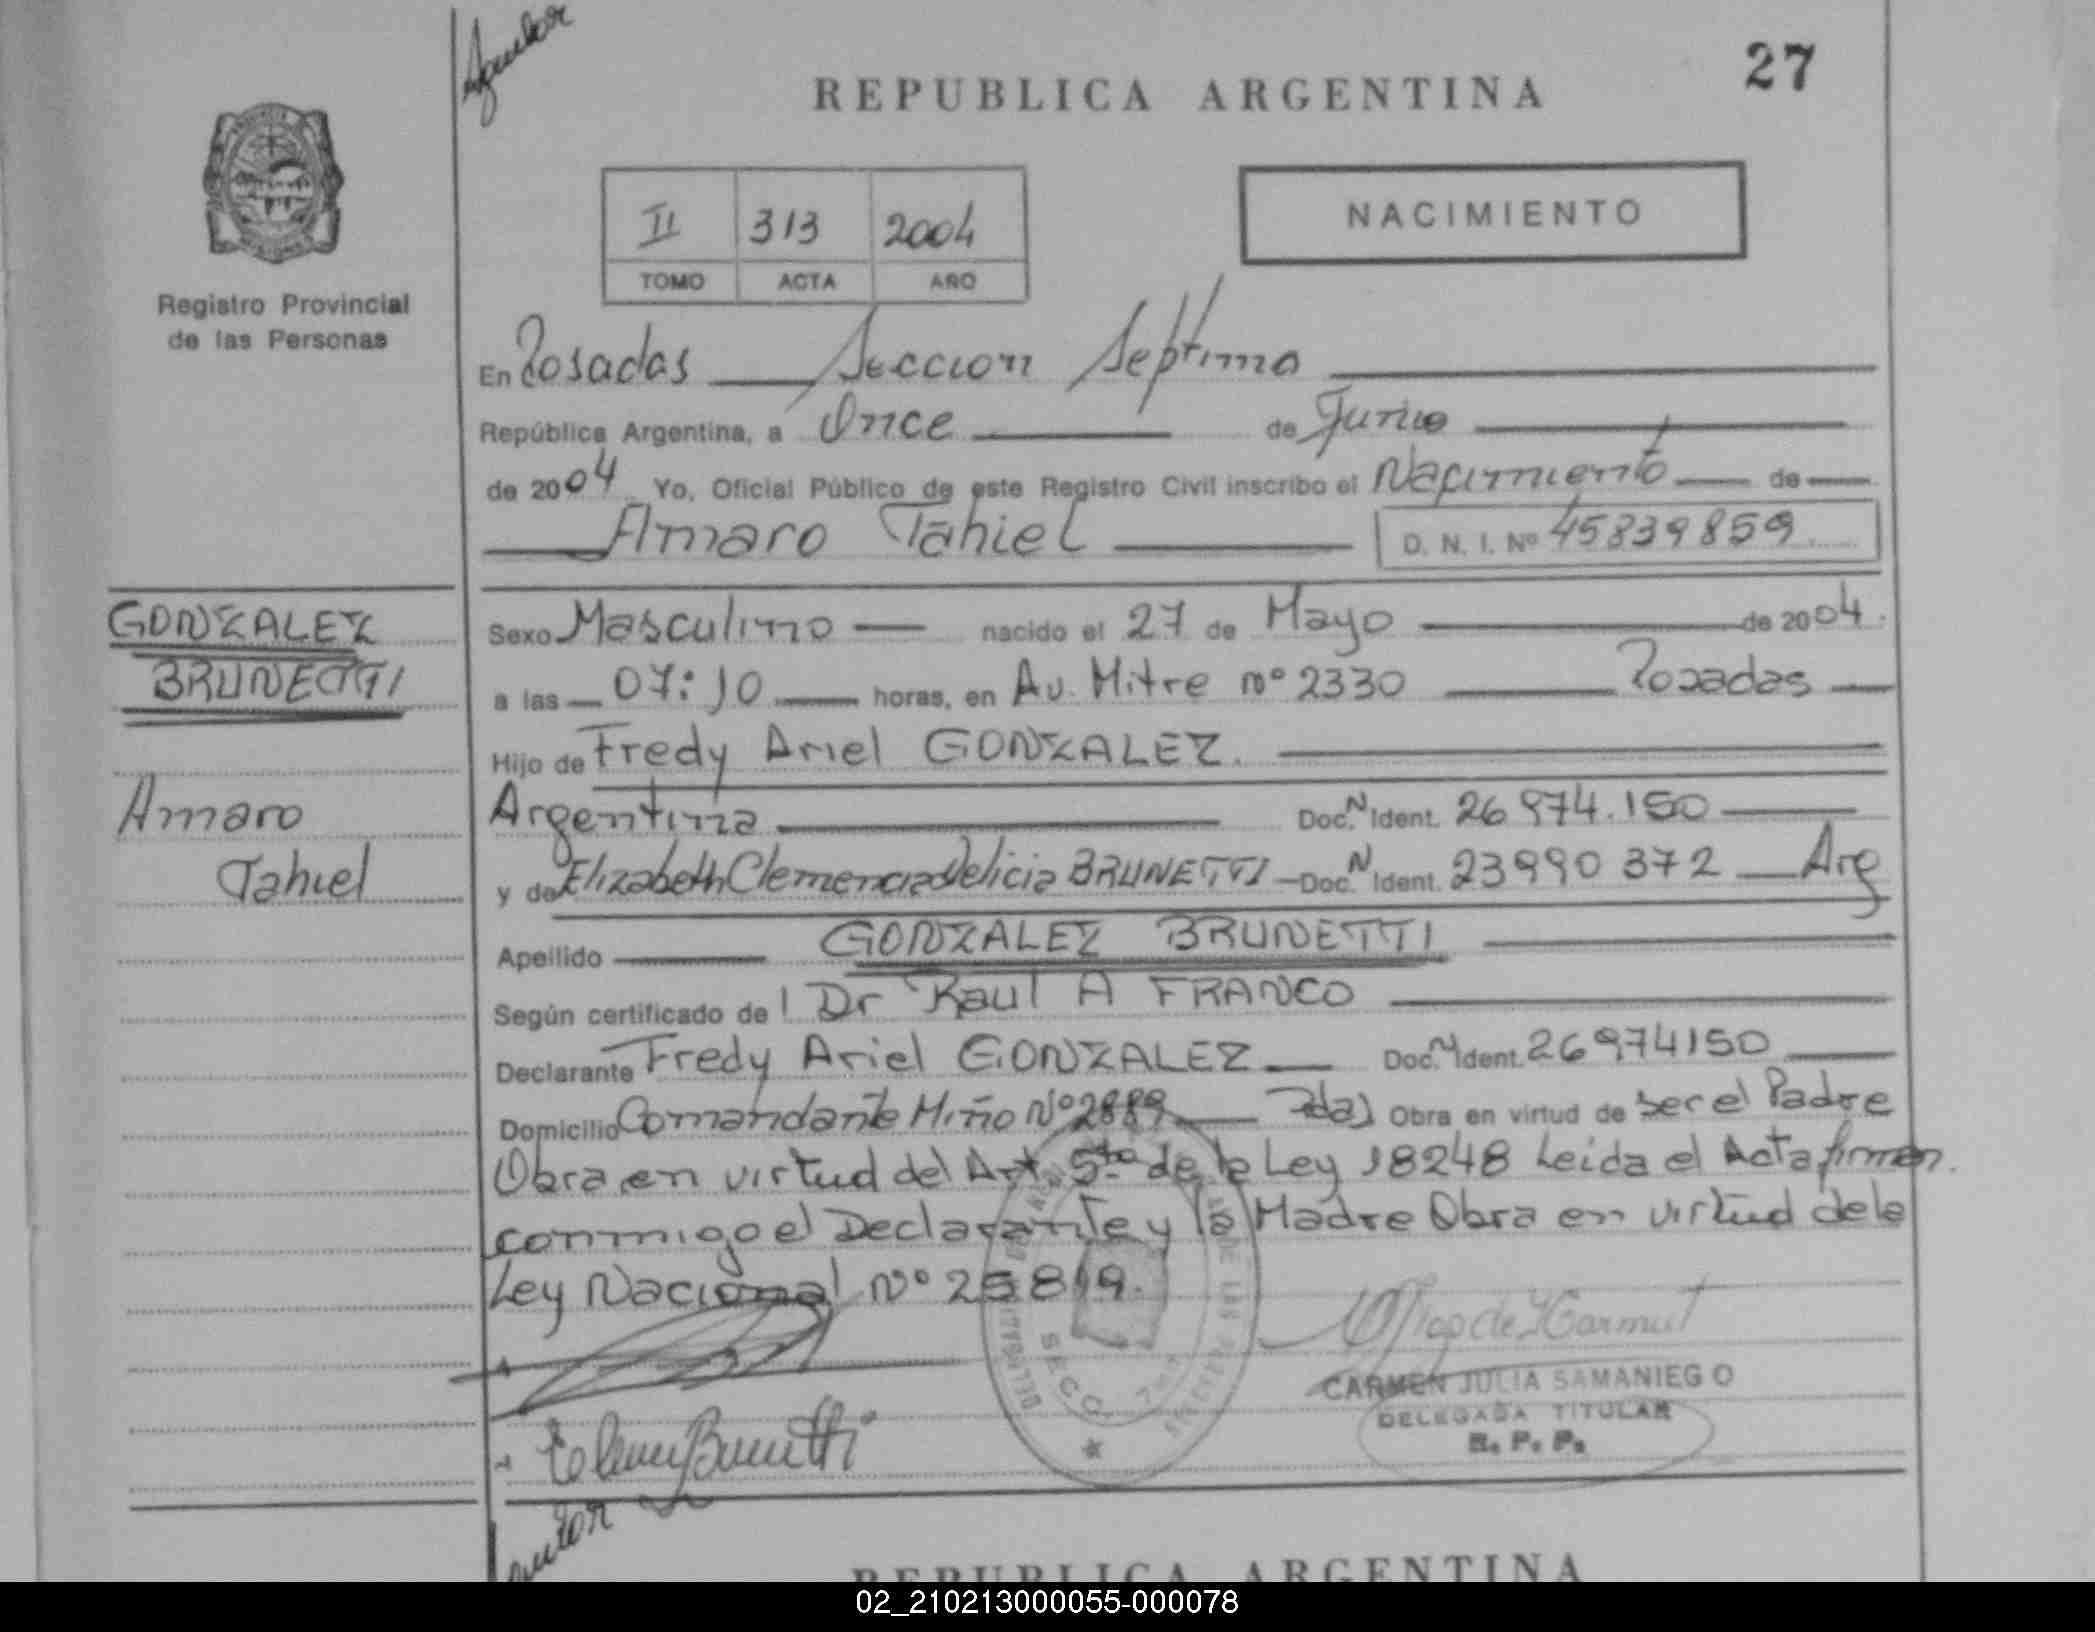 Aguilar
REPUBLICA ARGENTINA
27
II 313 2004
TOMO ACTA AÑO
NACIMIENTO
Registro Provincial
de las Personas
En Posadas Seccion Septima
República Argentina, a Once de Junio
de 2004 Yo, Oficial Público de este Registro Civil inscribo el Nacimiento de
Amaro Tahiel D. N. I. Nº 45839859
GONZALEZ
BRUNETTI
Amaro
Tahiel
Sexo Masculino nacido el 27 de Mayo de 2004.
a las 07:10 horas, en Av. Mitre nº 2330 Posadas
Hijo de Fredy Ariel GONZALEZ.
Argentina Doc. N Ident. 26974.150
y de Elizabeth Clemencia Delicia BRUNETTI Doc. N Ident. 23990372 Arg
Apellido GONZALEZ BRUNETTI
Según certificado de l Dr Raul A FRANCO
Declarante Fredy Ariel GONZALEZ Doc. N Ident. 26974150
Domicilio Comandante Miño Nº 2889 Pdas Obra en virtud de ser el Padre
Obra en virtud del Art. 5to de la Ley 18248 Leida el Acta firman
conmigo el Declarante y la Madre Obra en virtud de la
Ley Nacional Nº 25819.
SECC. 7ma
CARMEN JULIA SAMANIEGO
DELEGADA TITULAR
R. P. P.
REPUBLICA ARGENTINA
02_210213000055-000078